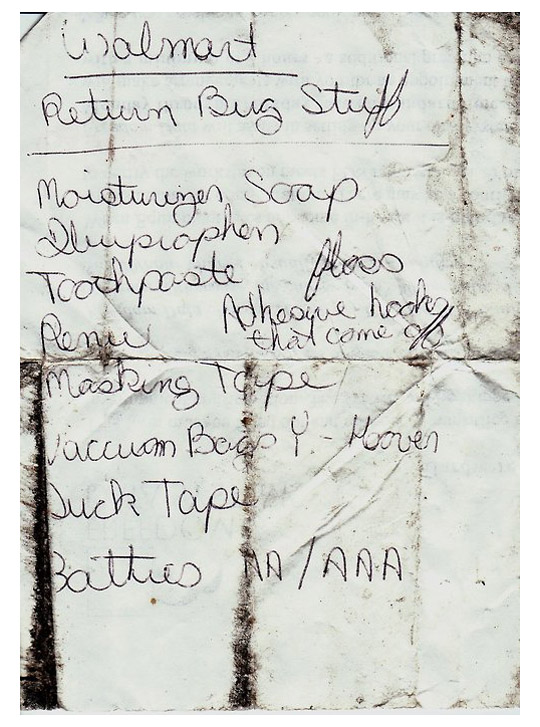 Walmart
Return Bug Stuff
Moisturizer Soap
Ibuprophen
Toothpaste floss
Renu Adhesive hooks
that come off
Masking Tape
Vaccuum Bags Y - Hoover
Duck Tape
Battries AA/AAA